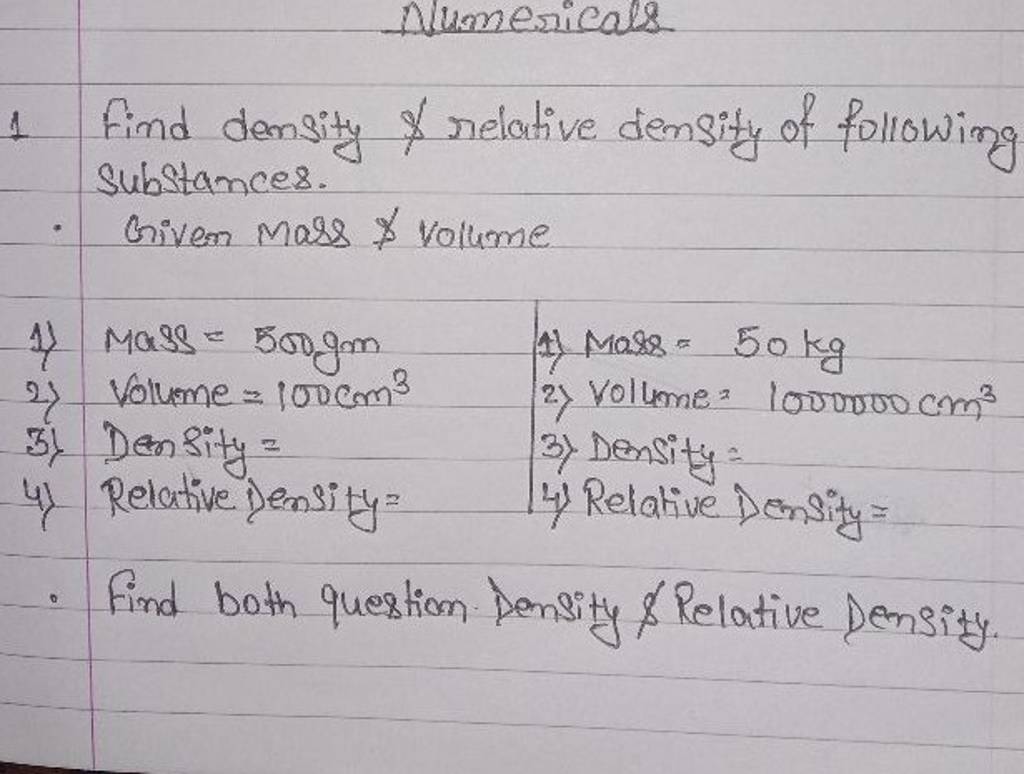 Numericals
1 Find density & relative density of following
substances.
• Given Mass & Volume
1) Mass = 500gm
2) Volume = 100cm³
3) Density =
4) Relative Density=
1) Mass = 50 kg
2) Volume = 1000000 cm³
3) Density =
4) Relative Density =
• Find both question Density & Relative Density.